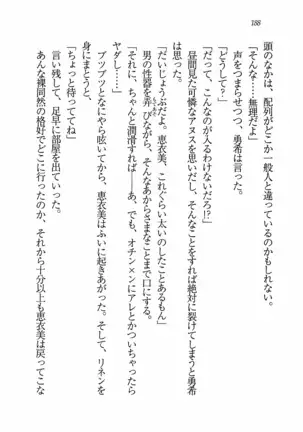 188
頭のなかは、配列がどこか一般人と違っているのかもしれない。
「そんな……無理だよ」
「どうして?」
「だって、こんなのが入るわけないだろ!?」
昼間見た可憐なアヌスを思いだし、そんなことをすれば絶対に裂けてしまうと勇希
は思った。
「だいじょうぶだよ。恵衣美、これぐらい太いのしたことあるもん」
男の性器を弄びながら、そんなあからさまなことまで口にする。
「それに、ちゃんと潤滑すれば――あ、でも、オチン×ンにアレとかついちゃったら
ヤダし……」
ブツブツとなにやら呟いてから、恵衣美はふいに起きあがった。そして、リネンを
身にまとうと、
「ちょっと待っててね」
言い残して、足早に部屋を出ていった。
あんな裸同然の格好でどこに行ったのか、それから十分以上も恵衣美は戻ってこな